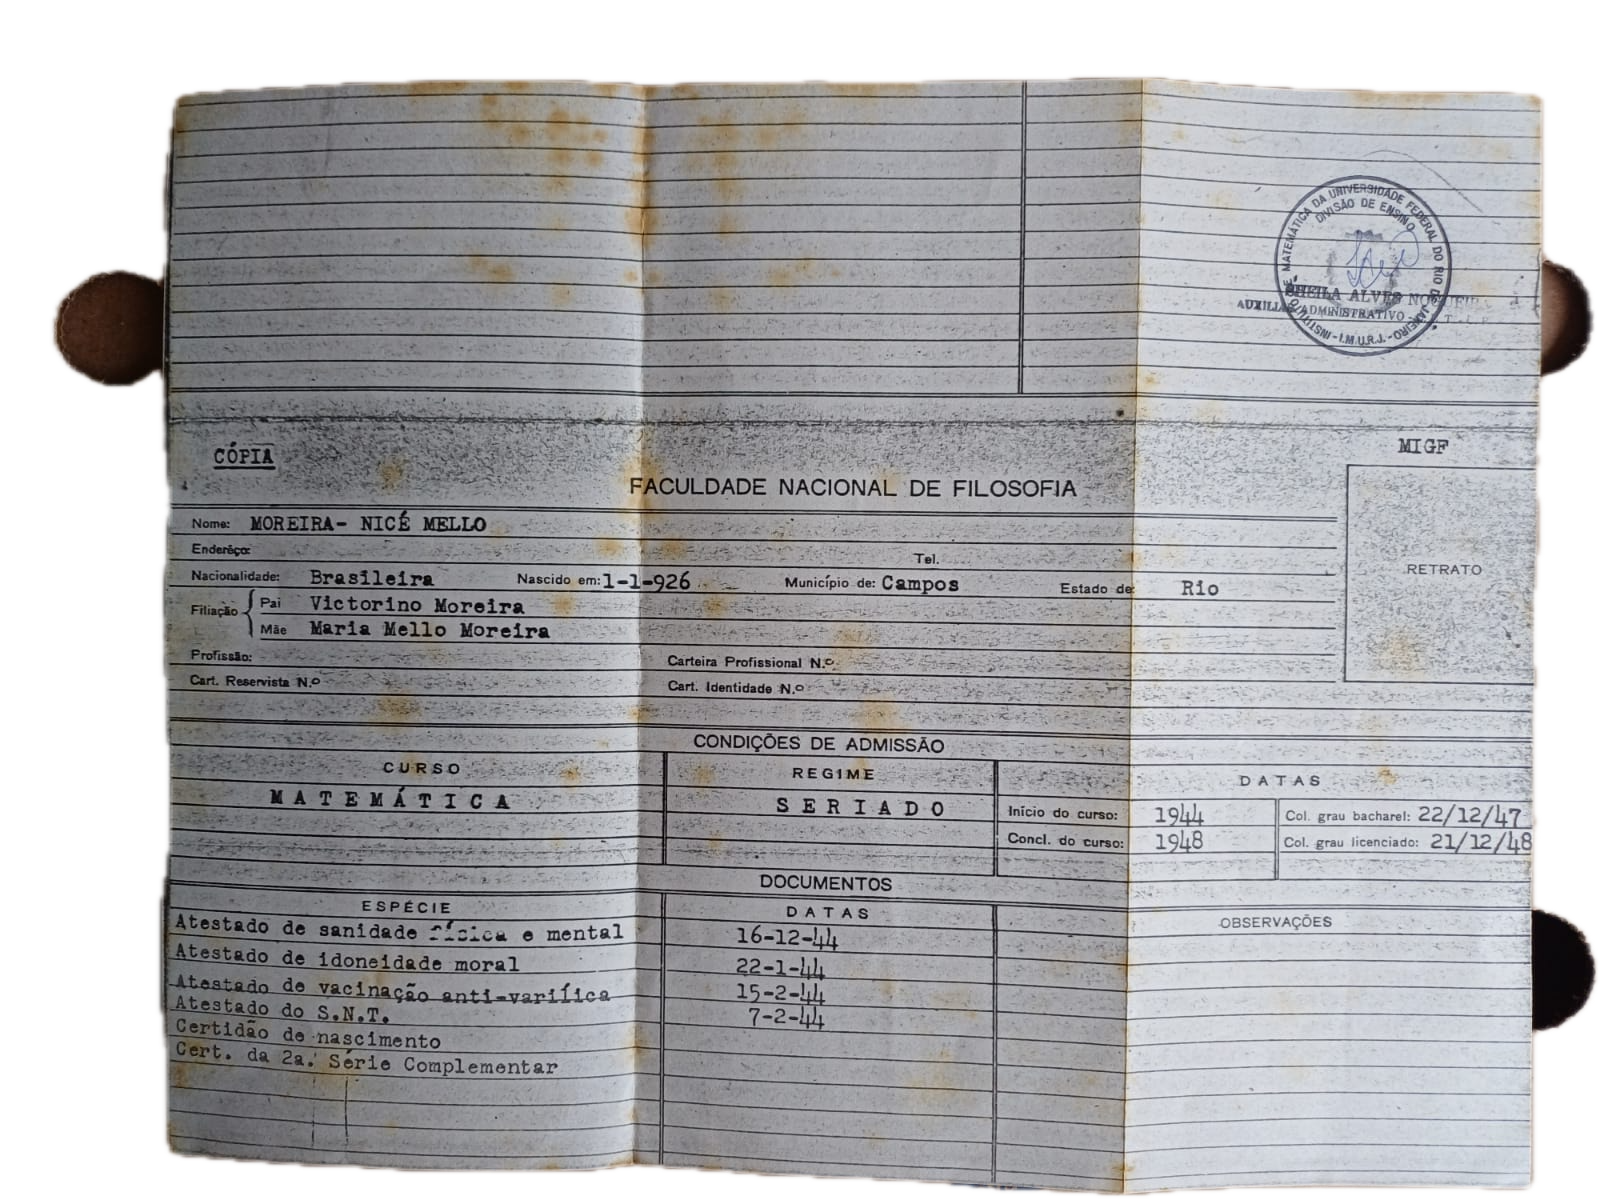 INSTITUTO DE MATEMÁTICA DA UNIVERSIDADE FEDERAL DO RIO DE JANEIRO - I.M.U.R.J. -
DIVISÃO DE ENSINO
SHEILA ALVES NOGUEIRA
AUXILIAR ADMINISTRATIVO
CÓPIA
MIGF
FACULDADE NACIONAL DE FILOSOFIA
Nome: MOREIRA- NICÉ MELLO
Enderêço:
Tel.
RETRATO
Nacionalidade: Brasileira Nascido em: 1-1-926 Município de: Campos Estado de: Rio
Filiação Pai Victorino Moreira
Mãe Maria Mello Moreira
Profissão: Carteira Profissional N.º
Cart. Reservista N.º Cart. Identidade N.º
CONDIÇÕES DE ADMISSÃO
CURSO REGIME DATAS
MATEMÁTICA SERIADO Início do curso: 1944 Col. grau bacharel: 22/12/47
Concl. do curso: 1948 Col. grau licenciado: 21/12/48
DOCUMENTOS
ESPÉCIE DATAS OBSERVAÇÕES
Atestado de sanidade física e mental 16-12-44
Atestado de idoneidade moral 22-1-44
Atestado de vacinação anti-varilíica 15-2-44
Atestado do S.N.T. 7-2-44
Certidão de nascimento
Cert. da 2a. Série Complementar